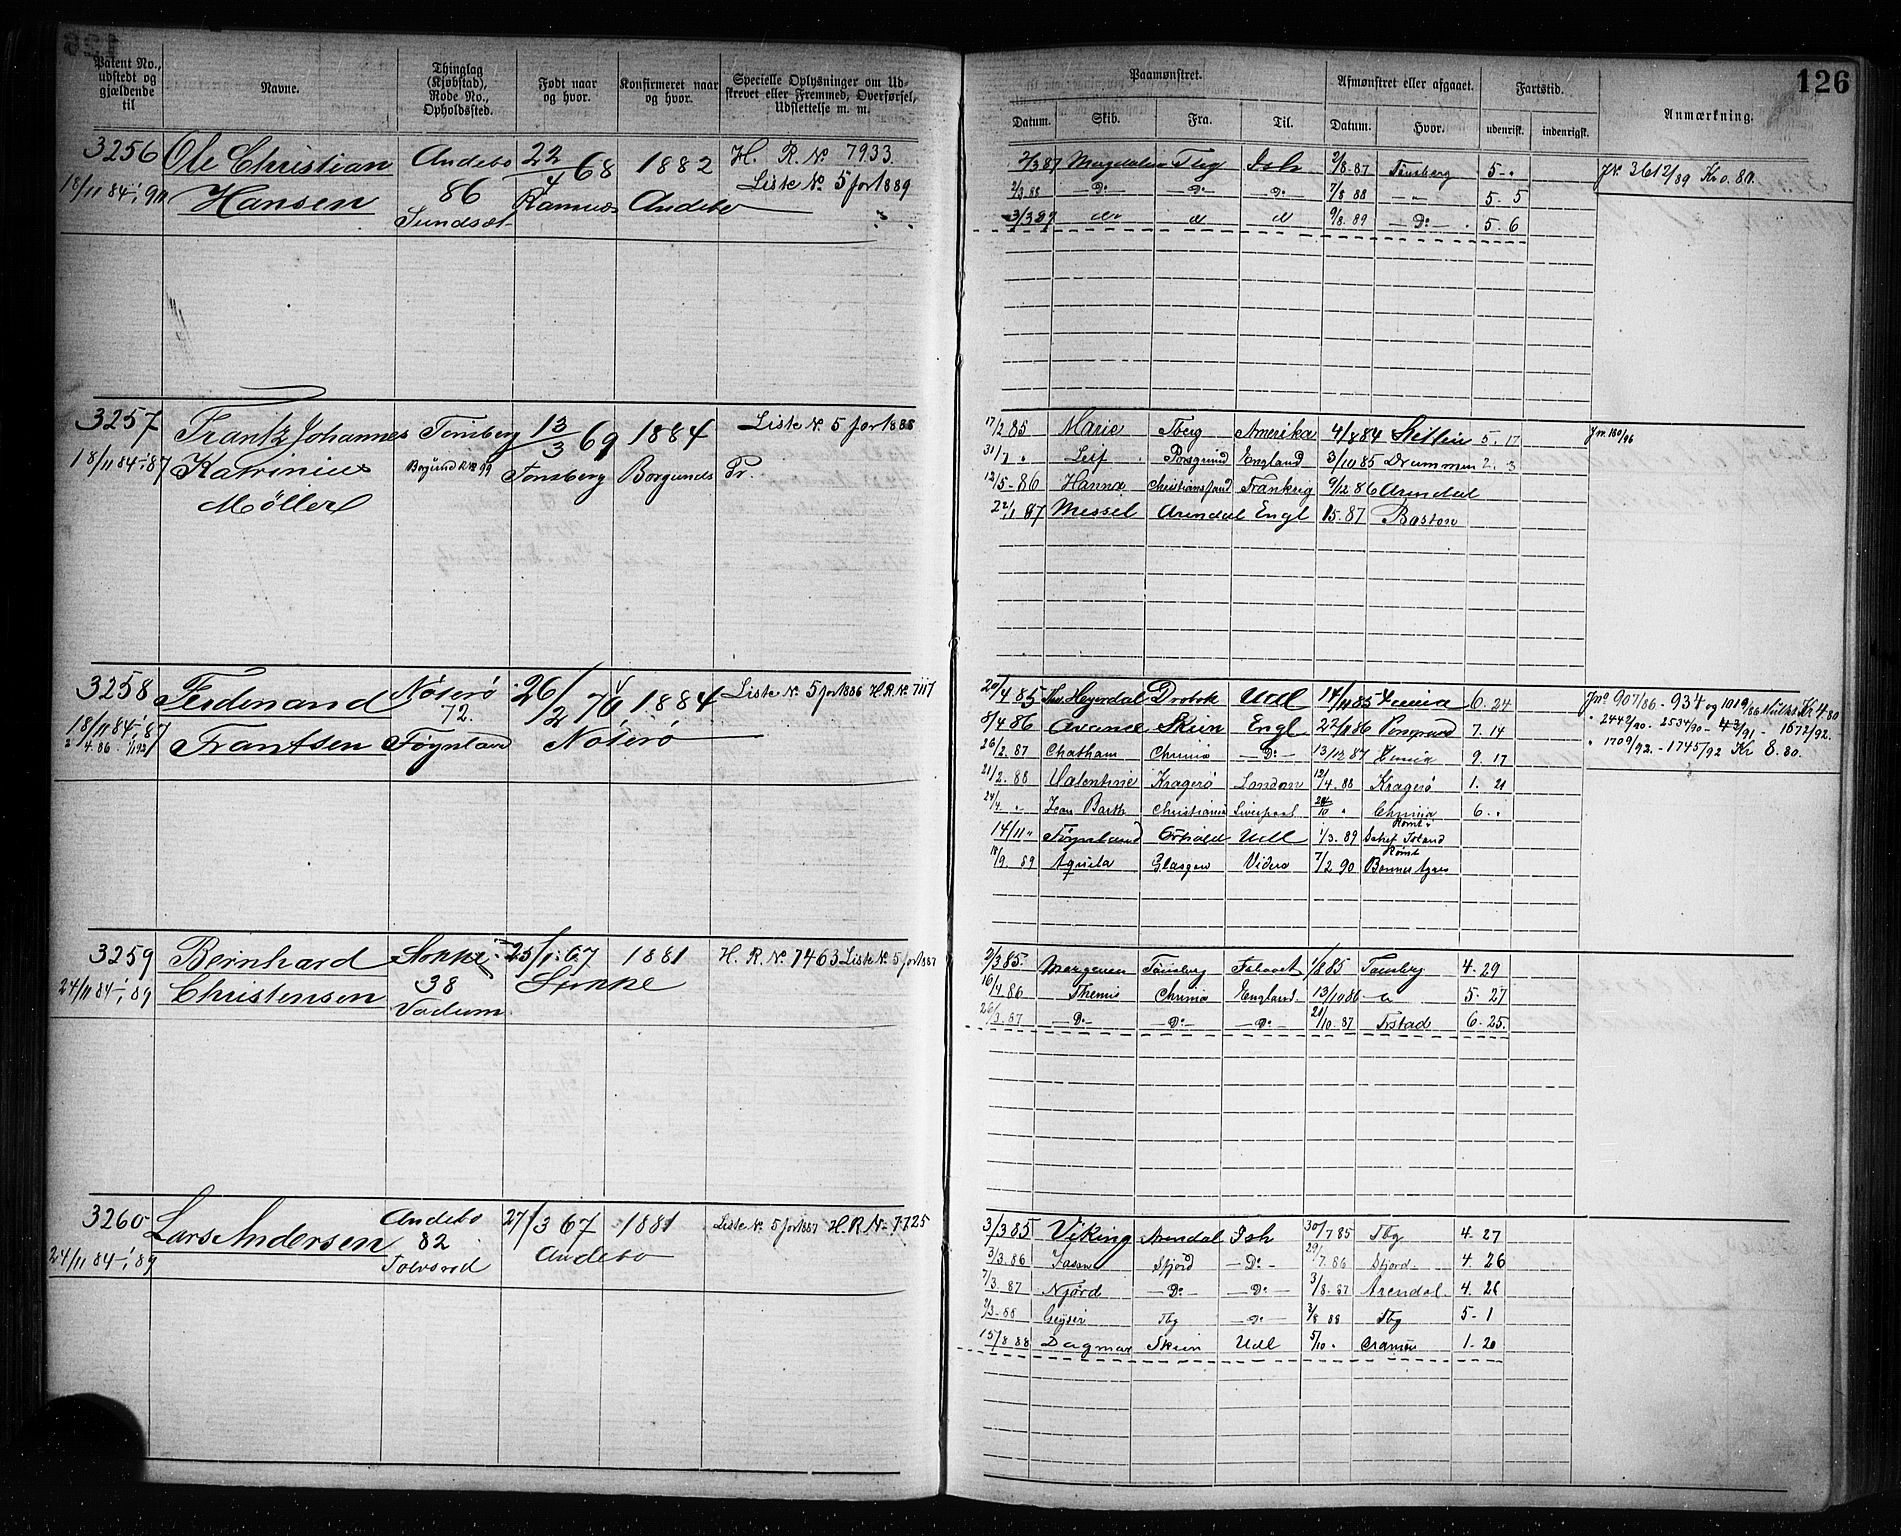 126
Patent No., udstedt og gjældende til
Navne.
Thinglag (Kjøbstad), Rode No., Opholdssted.
Født naar og hvor.
Konfirmeret naar og hvor.
Specielle Oplysninger om Udskrevet eller Fremmed, Overførsel, Udslettelse m. m.
Paamønstret.
Datum. Skib. Fra. Til.
Afmønstret eller afgaaet.
Datum. Hvor.
Fartstid.
udenrisk. indenrigsk.
Anmærkning.
3256 Ole Christian Andebo 22/4 68 1882 H. R. No 7933
18/11 84 Hansen 86 Ramnæs Andebo Liste No. 5 for 1889
Sundsæt
2/3 87 Magdalena Tbg Ish 2/8.87 Tønsberg 5 -
2/3 88 -Do- -Do- Do 7/8 88 - " - 5. 5
3/3 89 9/8. 89 -Do- 5. 6
Jno 3612/89 Kr 0.80
3257 Frantz Johannes Tønsberg 13/3 69 1884 Liste No. 5 for 1888
18/11 84 - 87 Katrinius 99 Tønsberg Borgunds Pr.
Møller
17/2 85 Marie Tberg Amerika Stettin 5. 17
31/7 " Leif Porsgrund England 3/10 85 Drammen 2. 3
12/5 - 86 Hanna Christianssand Frankrig 9/2 86 Arendal
87 Messel Arendal Engl 15. 87 Boston
3258 Ferdinand Nøterø 26/2 70 1884 Liste No. 5 for 1886 H. R. No 7117
18/11 84 - 87 72.
Frantsen Føynland Nøterø
20/4 85 Heyerdal Drøbak Udl 14/11 85 6. 24
8/4 86 Avance Skien Engl 22/11 86 Porsgrund 7. 14
26/2. 87 Chatham Chrania -Do- 13/12 87 9. 17
21/2. 88 Valentine Kragerø London 12/4. 88 Kragerø 1. 21
24/4 " Jean Barth Christiania Liverpool 6. "
14/11 " Føynland Udl 1/3. 89 Rømt
18/9. 89 Aquila Glasgow 7/2 90 Rømt
Buenos Ayres
Jno 907/86 - 934 og 1019/86 Mulkt Kr 4.80
" 2442/90 - 2534/90 - 1672/92.
" 1709/92. - 1745/92 Kr 8.80.
3259 Bernhard Stokke 25/1. 67 1881 H. R. No. 7463 Liste No. 5 for 1887
24/11 84 - 89 Christensen 38 Stokke
Vadum
2/3 85. Tønsberg 85 Tønsberg 4. 29
16/4. 86 Themis Chrania England. 13/10 86 5. 27
26/3. 87 -Do- -Do- -Do- 21/10. 87 6. 25.
3260 Lars Andersen Andebo 27/3 67 1881 Liste No. 5 for 1887 H. R. No. 7725
24/11 84 - 89 82 Andebo
Tolvsrød
3/3 85 Viking Arendal Ish 30/7 85 Tbg 4. 27
3/3. 86 Jason Sfjord -Do- 29/7. 86 Sfjord 4. 26
7/3. 87 Njørd -Do- -Do- 3/8. 87 Arendal 4. 26
2/3. 88 Geyser Tbg -Do- 3/8 88 Tbg 5. 1
15/8 88 Dagmar Skien Udl 5/10 " 1. 20